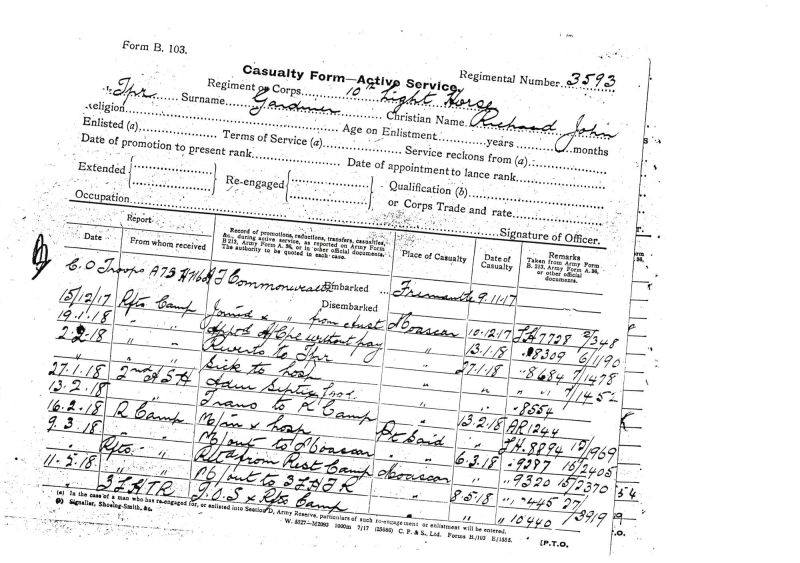 Form B. 103.
Casualty Form—Active Service.
Regimental Number 3593
Regiment or Corps 10th Light Horse
Tpr Surname Gardiner Christian Name Richard John
Religion Age on Enlistment years months
Enlisted (a) Terms of Service (a) Service reckons from (a)
Date of promotion to present rank Date of appointment to lance rank
Extended Re-engaged Qualification (b)
or Corps Trade and rate
Occupation
Signature of Officer.
Report
Date From whom received
Record of promotions, reductions, transfers, casualties, &c., during active service, as reported on Army Form B 213, Army Form A. 36, or in other official documents. The authority to be quoted in each case.
Place of Casualty
Date of Casualty
Remarks
Taken from Army Form B. 213, Army Form A. 36, or other official documents.
C.O Troops A73 Commonwealth Embarked Fremantle 9.11.17
Disembarked
15/12/17 Rfts Camp Joined from Aust Moascar 10.12.17 LH7728 2/348
19.1.18 " " Appd A/Cpl without pay " 13.1.18 " 8309 6/1190
2.2.18 " " Reverts to Tpr " 27.1.18 " 8684 7/1478
27.1.18 2nd ASH Sick to hosp " " " " 7/1452
13.2.18 " Adm Septic " " " 8554
" " Trans to R Camp " 13.2.18 AR1244
16.2.18 R Camp M/in x hosp Pt Said " LH 8894 12/1969
9.3.18 " M/out to Moascar " 6.3.18 " 9287 15/2405
" Rfts Retd from Rest Camp Moascar " " 9320 15/2370
11.5.18 " " M/out to 3 LHTR " 8.5.18 " " 445 27/
" 3 LHTR T.O.S x Rfts Camp " " " 10440 /3919
(a) In the case of a man who has re-engaged for, or enlisted into Section D, Army Reserve, particulars of such re-engagement or enlistment will be entered.
(b) Signaller, Shoeing-Smith, &c.
W. 5527—M2093 1000m 7/17 (25686) C. P. & S., Ltd. Forms B./103 E/1555.
[P.T.O.